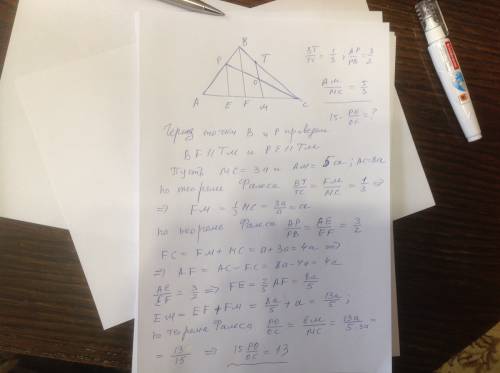 B
P
T
O
A
E
F
M
C
BT/TC = 1/3; AP/PB = 3/2
AM/MC = 5/3
15·PO/OC = ?
Через точки B и P проведем
BF || TM и PE || TM
Пусть MC = 3a и AM = 5a; AC = 8a
По теореме Фалеса BT/TC = FM/MC = 1/3 =>
=> FM = 1/3 MC = 3a/3 = a
По теореме Фалеса AP/PB = AE/EF = 3/2
FC = FM + MC = a + 3a = 4a =>
=> AF = AC - FC = 8a - 4a = 4a
AE/EF = 3/2 => FE = 2/5 AF = 8a/5
EM = EF + FM = 8a/5 + a = 13a/5;
По теореме Фалеса PO/OC = EM/MC = 13a/5·3a =
= 13/15 => 15·PO/OC = 13